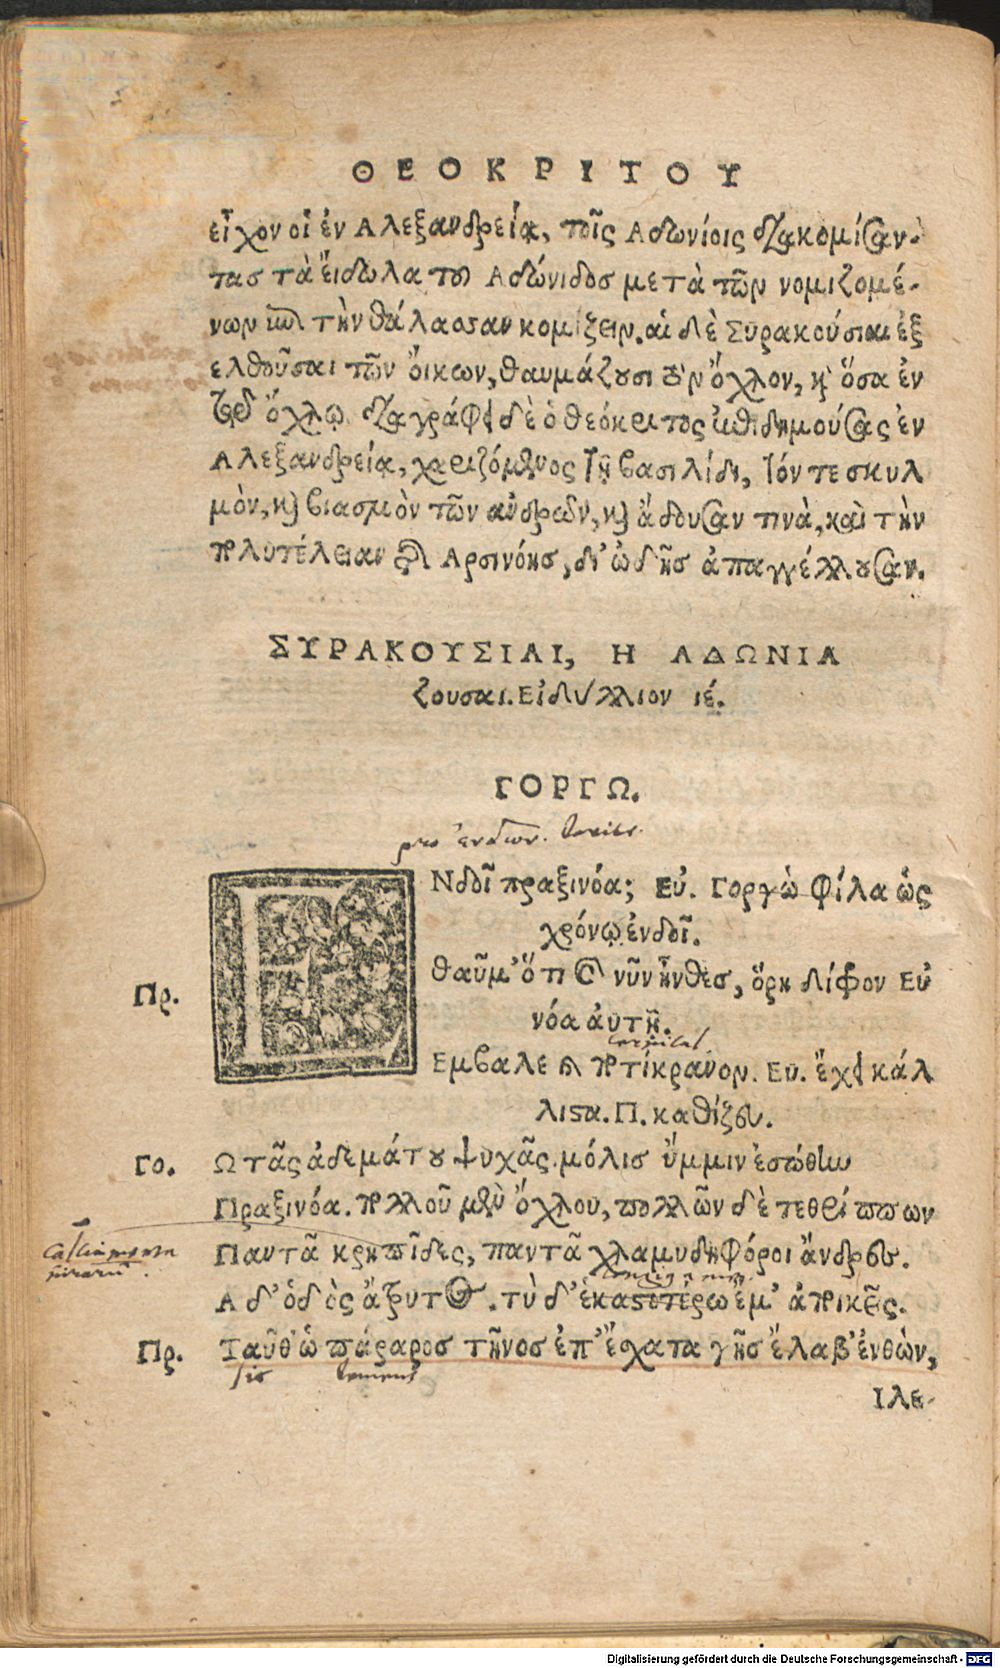 ΘΕΟΚΡΙΤΟΥ
εἶχον οἱ ἐν Αλεξανδρείᾳ, τοῖς Αδωνίοις διακομίσαν-
τας τὰ εἴδωλα τοῦ Αδώνιδος μετὰ τῶν νομιζομέ-
νων ἐπὶ τὴν θάλασσαν κομίζειν. αἱ δὲ Συρακούσιαι ἐξ
ελθοῦσαι τῶν ὄικων, θαυμάζουσι τὸν ὄχλον, καὶ ὅσα ἐν
τῷ ὄχλῳ. διαγράφει δὲ ὁ θεόκριτος ἐπιδημούσας ἐν
Αλεξανδρείᾳ, χαριζόμενος τῇ βασιλίδι, τόν τε σκυλ
μὸν, καὶ βιασμὸν τῶν ἀνδρῶν, καὶ ἄδουσαν τινὰ, καὶ τὴν
πολυτέλειαν τῆς Αρσινόης, δι' ὠδῆς ἀπαγγέλλουσαν.
ΣΥΡΑΚΟΥΣΙΑΙ, Η ΑΔΩΝΙΑ
ζουσαι. Εἰδύλλιον ιέ.
ΓΟΡΓΩ.
pro ἔνδον. dorice.
ΕΝδοῖ πραξινόα; Εὐ. Γοργὼ φίλα ὡς
χρόνῳ. ἐνδοῖ.
Πρ. θαῦμ' ὅτι καὶ νῦν ἦνθες, ὅρη δίφρον Εὐ
νόα ἀυτῇ.
Εμβαλε καὶ ποτίκρανον. Ευ. ἔχει κάλ
λιστα. Π. καθίζευ.
Γο. Ω τᾶς ἀδεμάτου ψυχᾶς. μόλις ὔμμιν ἐσώθην
Πραξινόα. πολλοῦ μὲν ὄχλου, πολλῶν δὲ τεθρίππων
Παντᾶ κρηπῖδες, παντᾶ χλαμυδηφόροι ἄνδρες.
Α δ' ὁδὸς ἄτρυτος. τὺ δ' ἑκαστοτέρω ἐμ' ἀποικεῖς.
Πρ. Ταῦθ' ὁ πάραρος τῆνος ἐπ' ἔσχατα γῆς ἔλαβ' ἐνθὼν,
Ιλε-
Digitalisierung gefördert durch die Deutsche Forschungsgemeinschaft - DFG